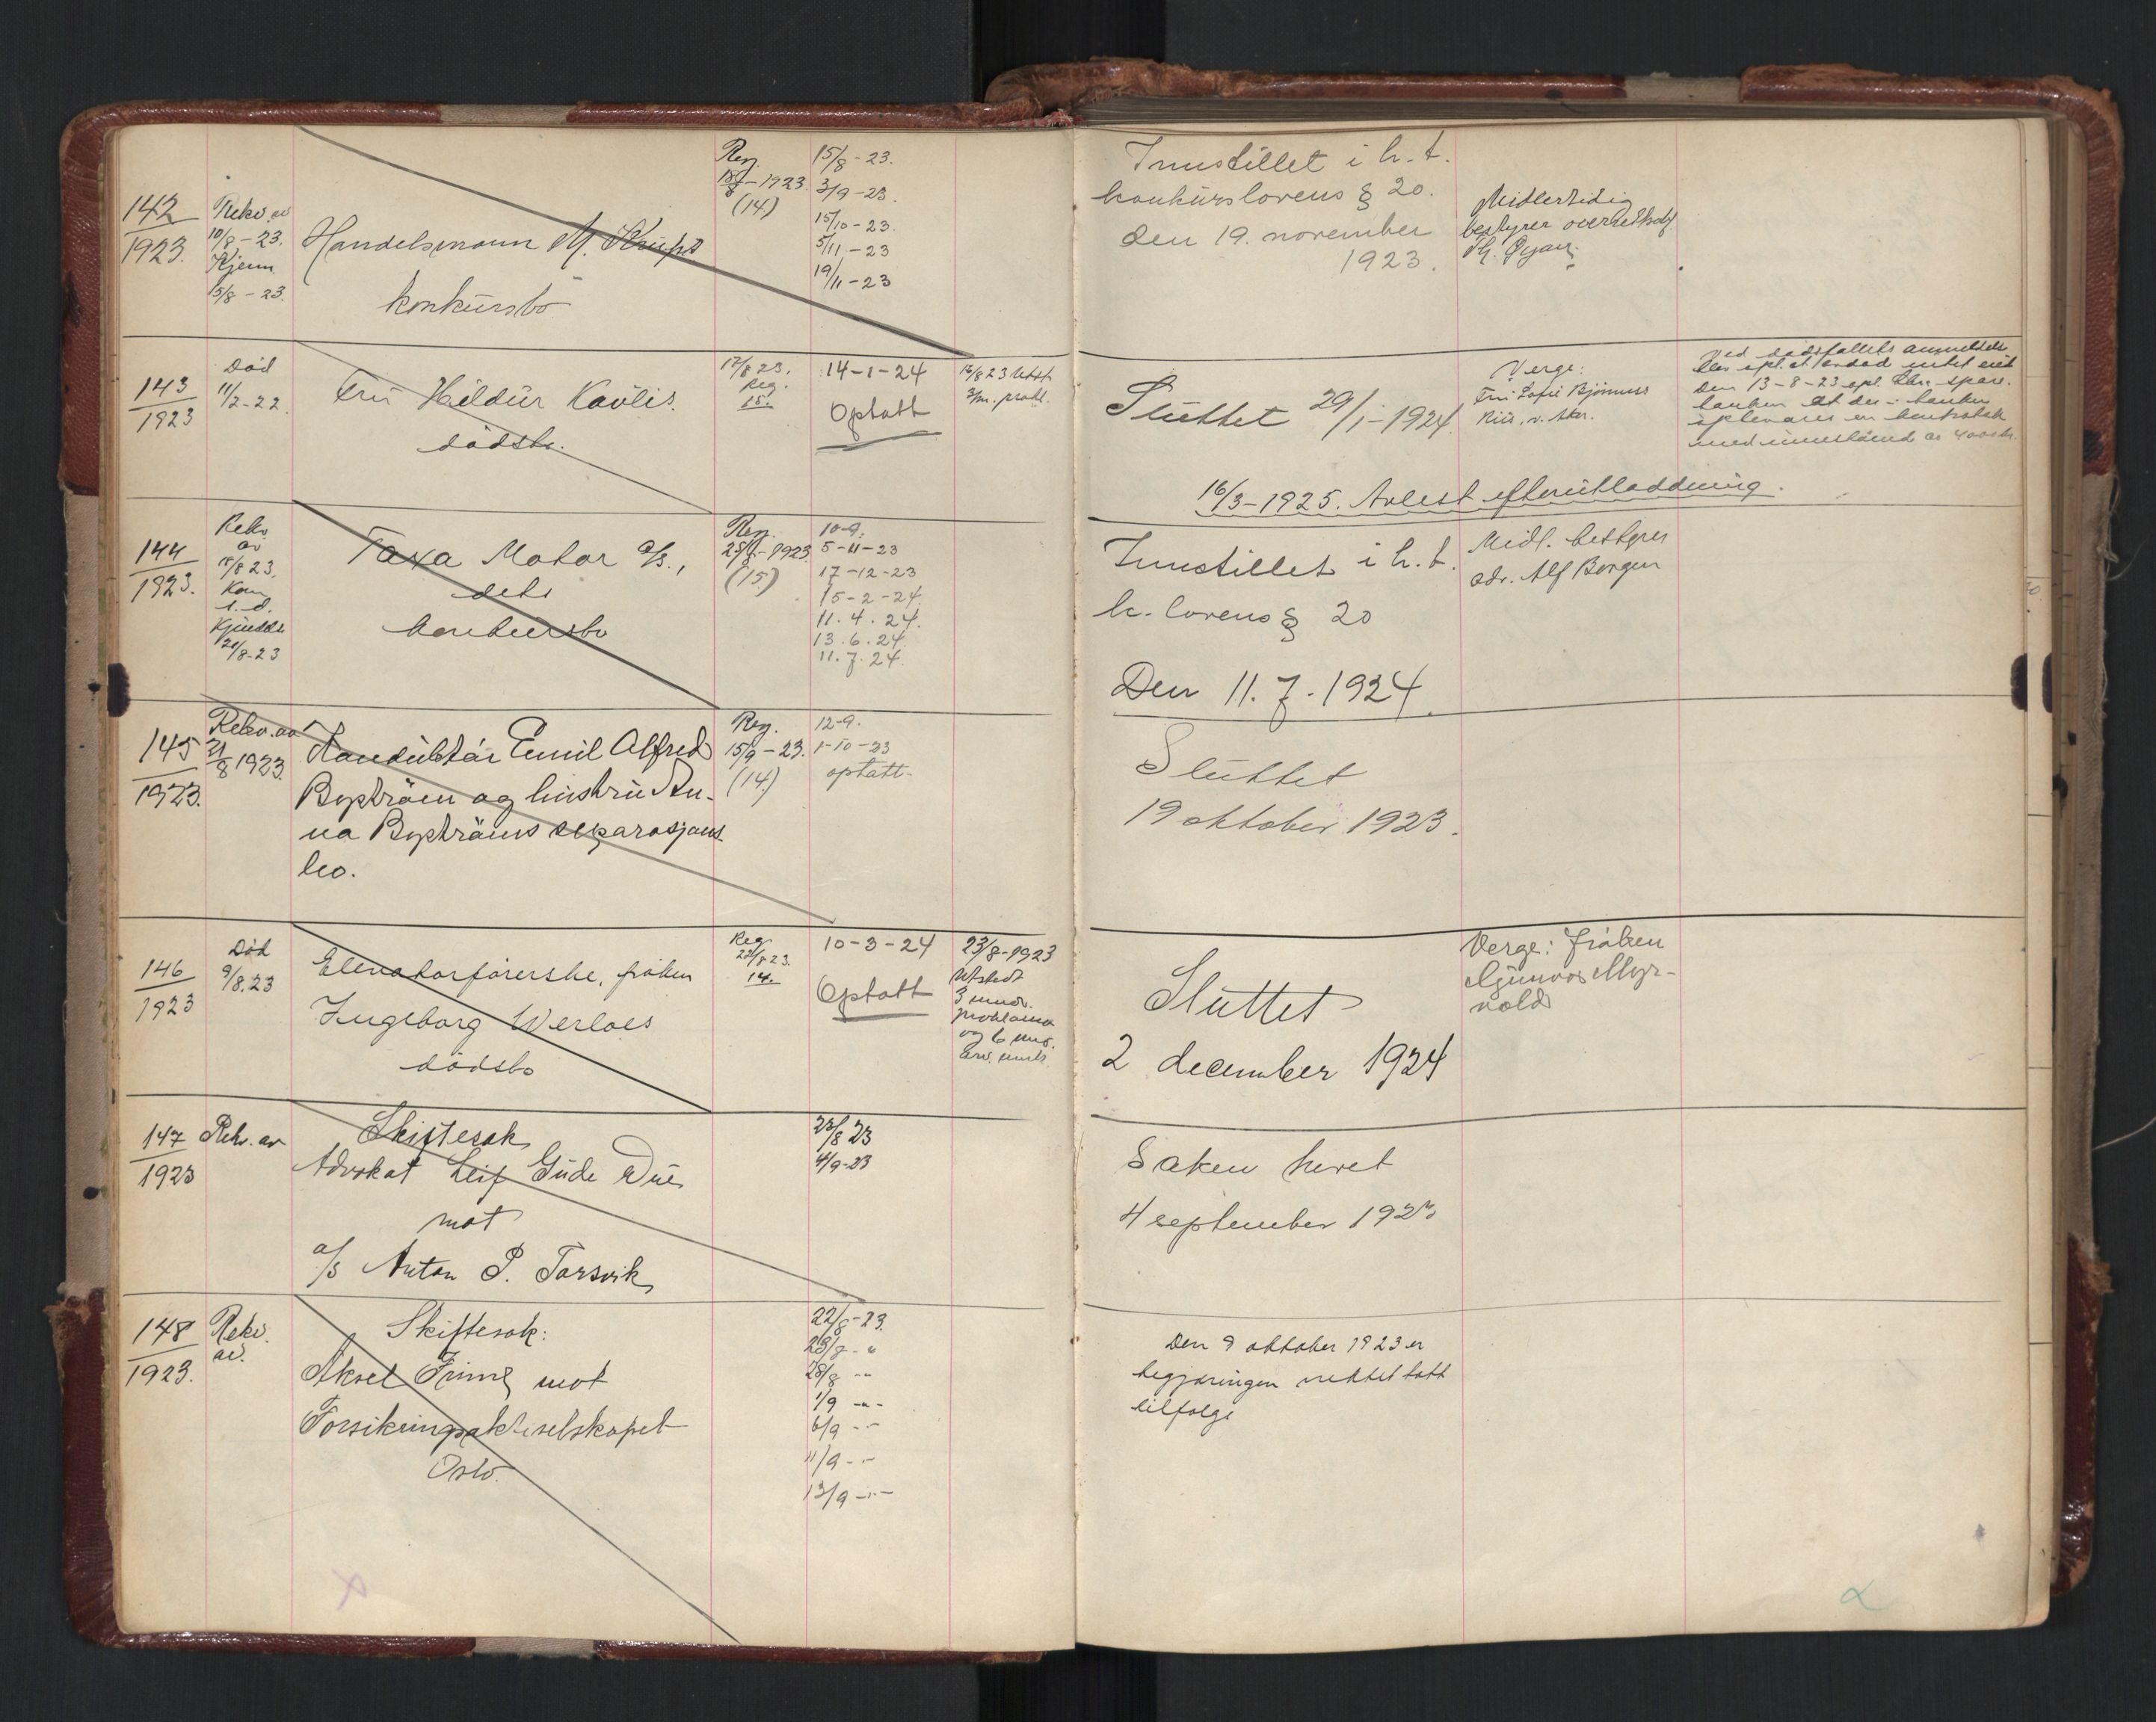 142
1923.
Rekv. av
10/8-23.
Kjenn
15/8-23.
Handelsmann M. Krups
konkursbo
Reg.
18/8-1923
(14)
15/8-23.
3/9-23.
15/10-23.
5/11-23
19/11-23
Innstillet i h. t.
konkurslovens § 20.
den 19. november
1923.
Midlertidig
bestyrer
143
1923
Død
11/2-22.
Fru Hildur Kavlis.
dødsbo.
17/8 23.
Reg.
15.
14-1-24
Optatt
16/8 23 Utst.
3 m. prokl.
Sluttet 29/1-1924.
Verge:
Fru Sofie
Ved dødsfallets anmeldelse
blev opl. at
Den 13-8-23 opl. Chr. spare-
banken at der i banken
av 400 kr.
16/3-1925. Avlest efterutloddning.
144
1923.
Rekv
av
18/8 23.
Kon
s. d.
Kjendels
20/8-23
Taxa Motor a/s.,
dets
konkursbo
Reg.
25/8-1923
(15)
10-9.
5-11-23
17-12-23
15-2-24.
11.4.24.
13.6.24.
11.7.24.
Innstillet i h. t.
k. lovens § 20
Den 11.7.1924.
Midl. bestyrer
adv. Alf Borgen
145
1923.
Rekv. av
21/8 1923.
Konduktør Emil Alfred
Byströem og hustru An-
na Byströms separasjons
bo.
Reg.
15/9-23.
(14)
12-9.
1-10-23
optatt-
Sluttet
19 oktober 1923.
146
1923
Død
9/8.23
Elevatorførerske, frøken
Ingeborg Werloes
dødsbo
Reg.
22/8 23.
14.
10-3-24
Optatt
23/8-1923
Utstedt
3 mndr.
proklama
og 6 mnd.
Sluttet
2 december 1924
Verge: Frøken
Gunvor Myr-
vold
147
1923
Rekv. av
Skiftesak
Advokat Leif Gude Due
mot
a/s Anton P. Torsvik
23/8 23
4/9-23
Saken hevet
4 september 1923
148
1923.
Rekv.
av.
Skiftesak:
Aksel Frime mot
Forsikringsaktieselskapet
Oslo.
22/8-23.
23/8-"
28/8 -"-
1/9 -"-
6/9 -"-
11/9 -"-
13/9 -"-
Den 9 oktober 1923 er
begjæringen tatt
tilfølge